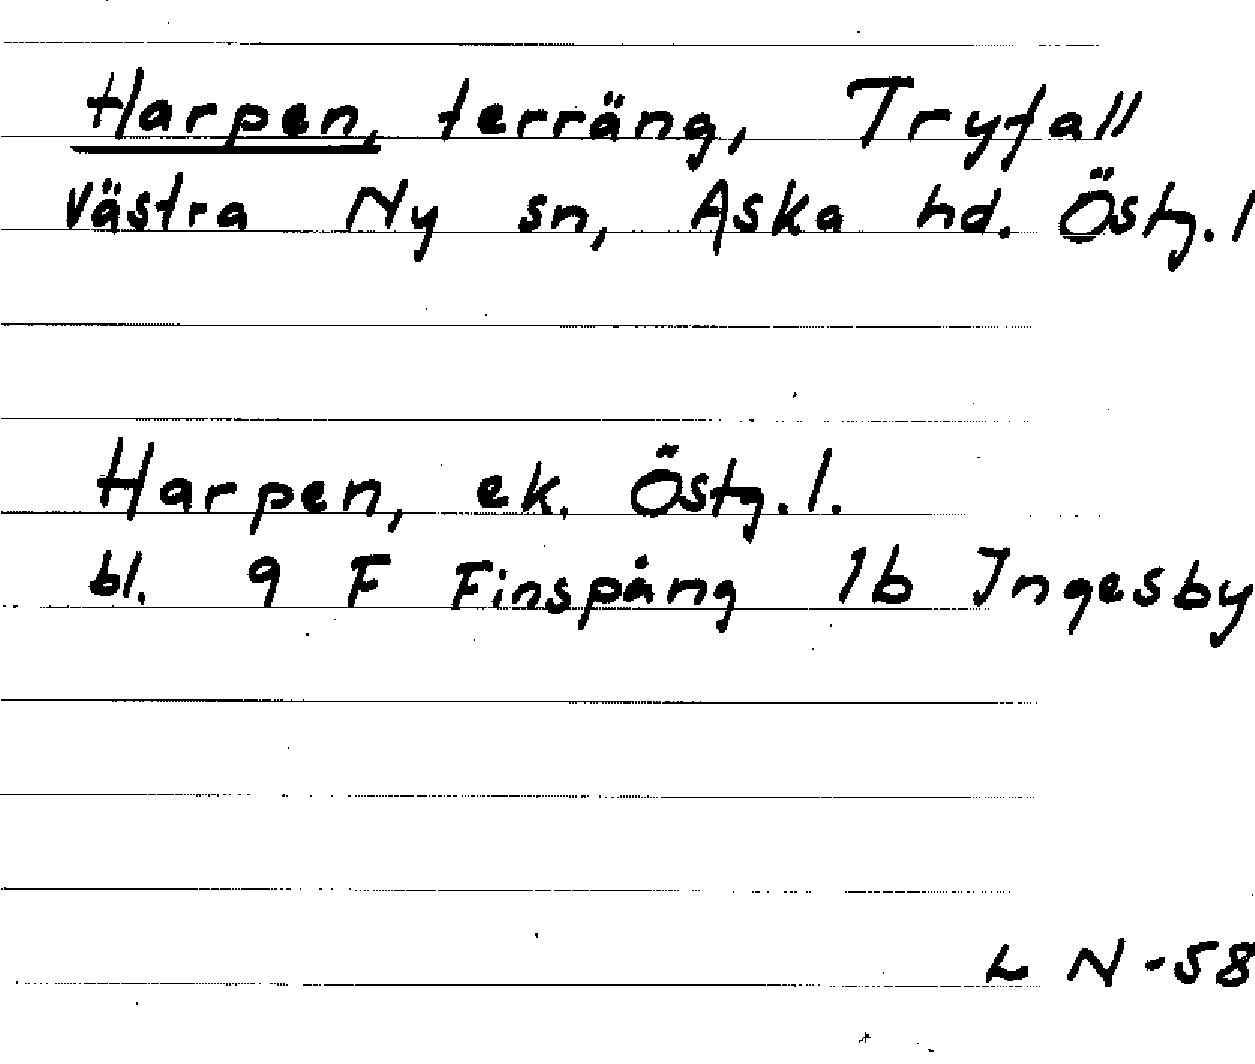 Harpen, terräng, Tryfall
Västra Ny sn, Aska hd. Östg. l
Harpen, ek. Östg. l.
bl. 9 F Finspång 1b Ingesby
L N -58